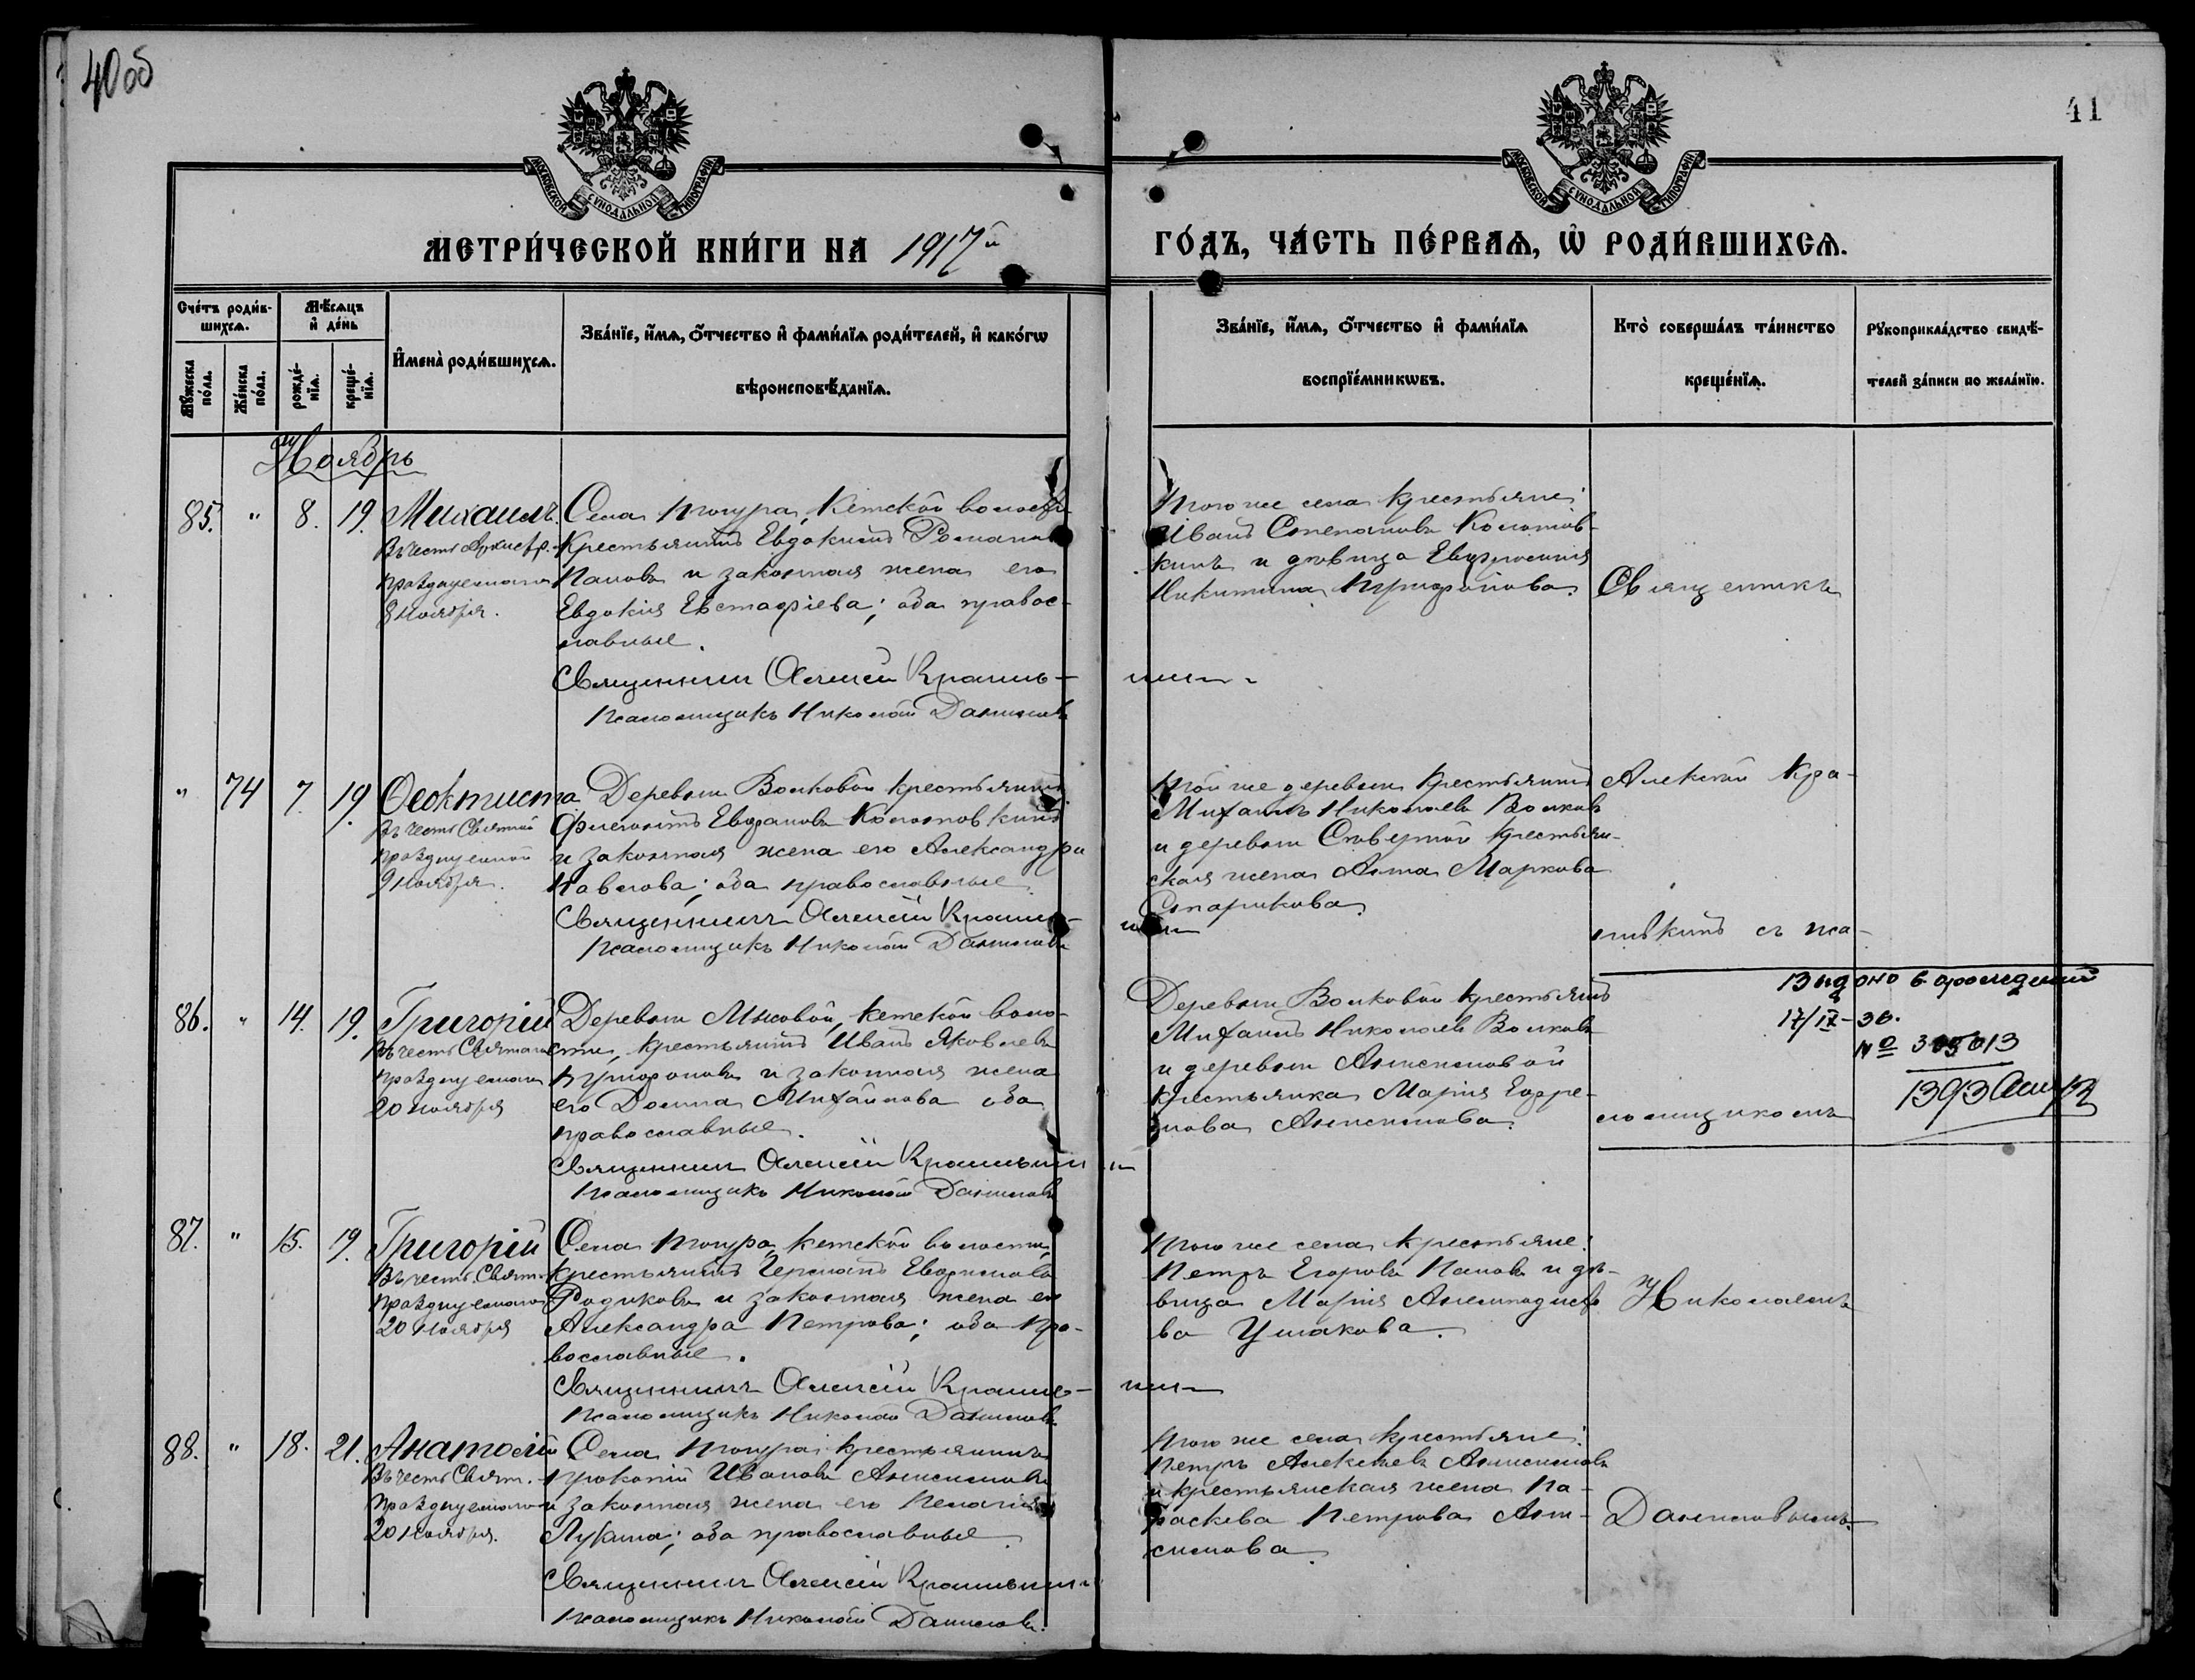 40 об
41
МОСКОВСКОЙ СѴНОДАЛЬНОЙ ТИПОГРАФІИ
МОСКОВСКОЙ СѴНОДАЛЬНОЙ ТИПОГРАФІИ
МЕТРИ́ЧЕСКОЙ КНИ́ГИ НА 1917й
ГО́ДЪ, ЧА́СТЬ ПЕ́РВАѦ, Ѡ҆ РОДИ́ВШИХСѦ.
Сче́тъ роди́в-
шихсѧ.
Мѣ́сѧцъ
и҆ де́нь
Мꙋ́жеска по́ла.
Же́нска по́ла.
рожде́-нїѧ.
креще́-нїѧ.
И҆мена̀ роди́вшихсѧ.
Зва́нїе, и҆́мѧ, ѻ҆́тчество и҆ фами́лїѧ роди́телей, и҆ како́гѡ
вѣроисповѣ́данїѧ.
Зва́нїе, и҆́мѧ, ѻ҆́тчество и҆ фами́лїѧ
воспрїе́мникѡвъ.
Кто̀ соверша́лъ та́инство
креще́нїѧ.
Рꙋкоприкла́дство свидѣ́-
телей за́писи по жела́нїю.
Ноябрь
85. " 8. 19. Михаилъ
Въ честь Архистр.
празднуемаго
8 Ноября.
Села Тогура, Кетской волости
Крестьянинъ Евдокимъ Романовъ
Пановъ и законная жена его
Евдокія Евстафіева; оба правос-
лавные.
Священникъ Алексій Крапив-
Псаломщикъ Николай Даниловъ
Того же села крестьяне:
Иванъ Степановъ Колотов-
кинъ и дѣвица Евфросинія
Никитина Трифонова.
Священникъ
" 74 7. 19. Ѳеоктиста
Въ честь Святой
празднуемой
9 Ноября.
Деревни Волковой крестьянинъ
Филемонъ Евфановъ Колотовкинъ
и законная жена его Александра
Павлова; оба православные.
Священникъ Алексій Крапив-
Псаломщикъ Николай Даниловъ
Той же деревни крестьянинъ
Михаилъ Николаевъ Волковъ
и деревни Сѣверной крестьян-
ская жена Анна Маркова
Старикова.
Алексій Кра-
пивкинъ съ пса-
86. " 14. 19. Григорій
Въ честь Святаго
празднуемаго
20 Ноября
Деревни Мысовой, Кетской воло-
сти, крестьянинъ Иванъ Яковлевъ
Трифоновъ и законная жена
его Домна Михайлова оба
православные.
Священникъ Алексій Крапивкинъ
Псаломщикъ Николай Даниловъ
Деревни Волковой крестьянинъ
Михаилъ Николаевъ Волковъ
и деревни Анисимовой
крестьянка Марія Ефре-
мова Анисимова.
ломщикомъ
Выдано
17/IX-36.
№ 305013
87. " 15. 19. Григорій
Въ честь Свят.
празднуемаго
20 Ноября
Села Тогура, Кетской волости,
крестьянинъ Германъ Евфимовъ
Родиковъ и законная жена его
Александра Петрова; оба пра-
вославные.
Священникъ Алексій Крапив-
Псаломщикъ Николай Даниловъ
Того же села крестьяне:
Петръ Егоровъ Пановъ и дѣ-
вица Марія
ва Ушакова.
Николаемъ
88. " 18. 21. Анатолій
Въ честь Свят.
празднуемаго
20 Ноября.
Села Тогура крестьянинъ
Прокопій Ивановъ Анисимовъ
и законная жена его Пелагія
Лукина; оба православные.
Священникъ Алексій Крапивкинъ
Псаломщикъ Николай Даниловъ.
Того же села крестьяне:
Петръ Алексѣевъ Анисимовъ
и крестьянская жена Па-
раскева Петрова Ани-
симова.
Даниловымъ.